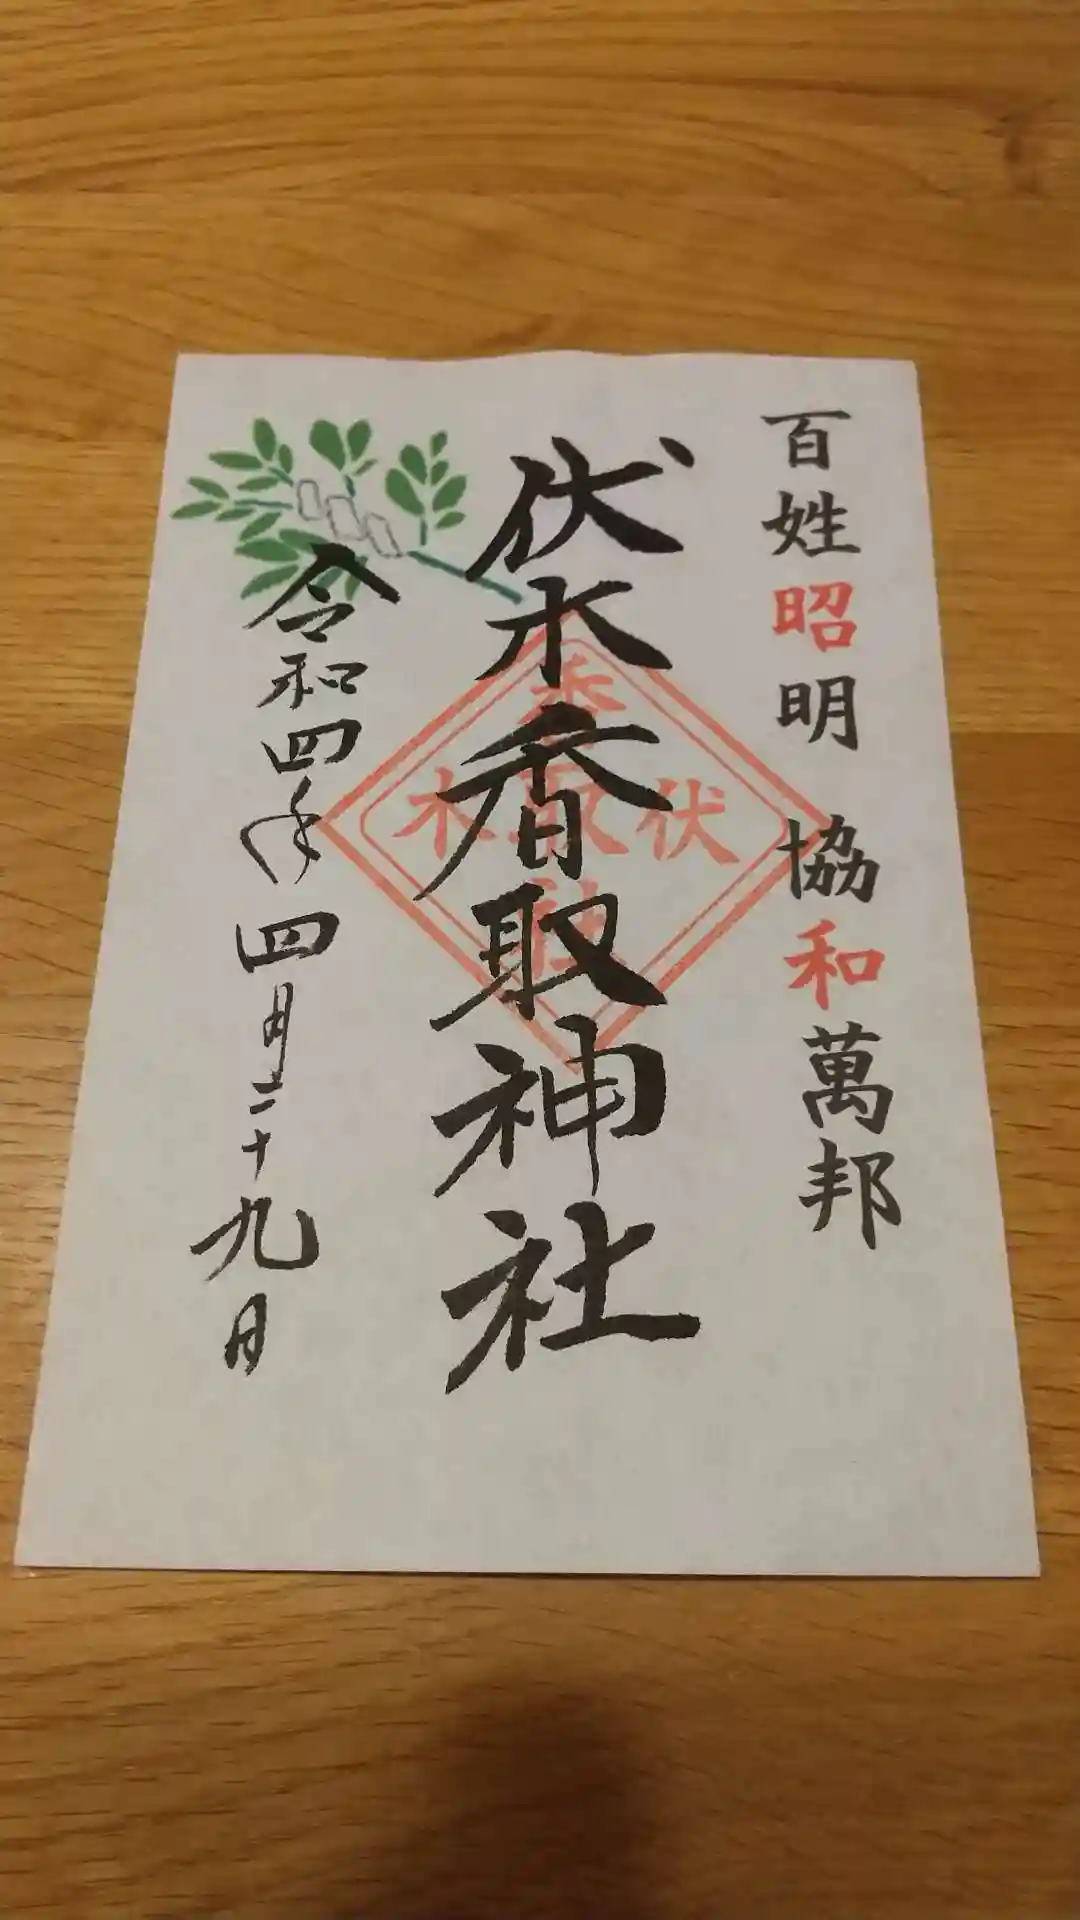 百姓昭明 協和萬邦
伏木香取神社
香
伏取木
社
令和四年四月二十九日